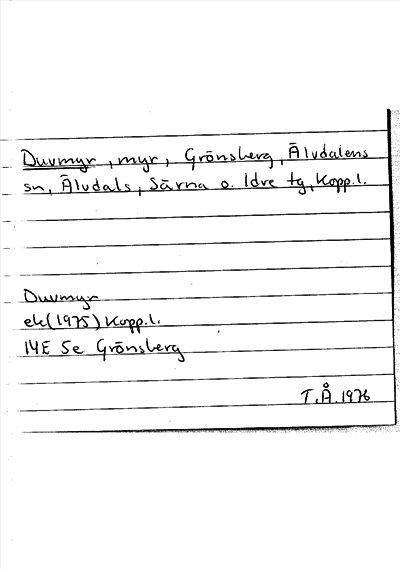 Duvmyr, myr, Grönsberg, Älvdalens
sn, Älvdals, Särna o. Idre tg, Kopp.l.
Duvmyr
ek(1975) Kopp.l.
14E 5e Grönsberg
T.Å.1976